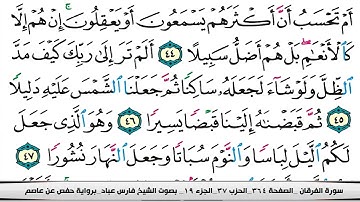 أَمْ تَحْسَبُ أَنَّ أَكْثَرَهُمْ يَسْمَعُونَ أَوْ يَعْقِلُونَ ۚ إِنْ هُمْ إِلَّا
كَٱلْأَنْعَٰمِ ۖ بَلْ هُمْ أَضَلُّ سَبِيلًا ٤٤ أَلَمْ تَرَ إِلَىٰ رَبِّكَ كَيْفَ مَدَّ
ٱلظِّلَّ وَلَوْ شَآءَ لَجَعَلَهُۥ سَاكِنًا ثُمَّ جَعَلْنَا ٱلشَّمْسَ عَلَيْهِ دَلِيلًا
٤٥ ثُمَّ قَبَضْنَٰهُ إِلَيْنَا قَبْضًا يَسِيرًا ٤٦ وَهُوَ ٱلَّذِى جَعَلَ
لَكُمُ ٱلَّيْلَ لِبَاسًا وَٱلنَّوْمَ سُبَاتًا وَجَعَلَ ٱلنَّهَارَ نُشُورًا ٤٧
سورة الفرقان _الصفحة ٣٦٤_الحزب ٣٧_الجزء ١٩_ بصوت الشيخ فارس عباد_برواية حفص عن عاصم